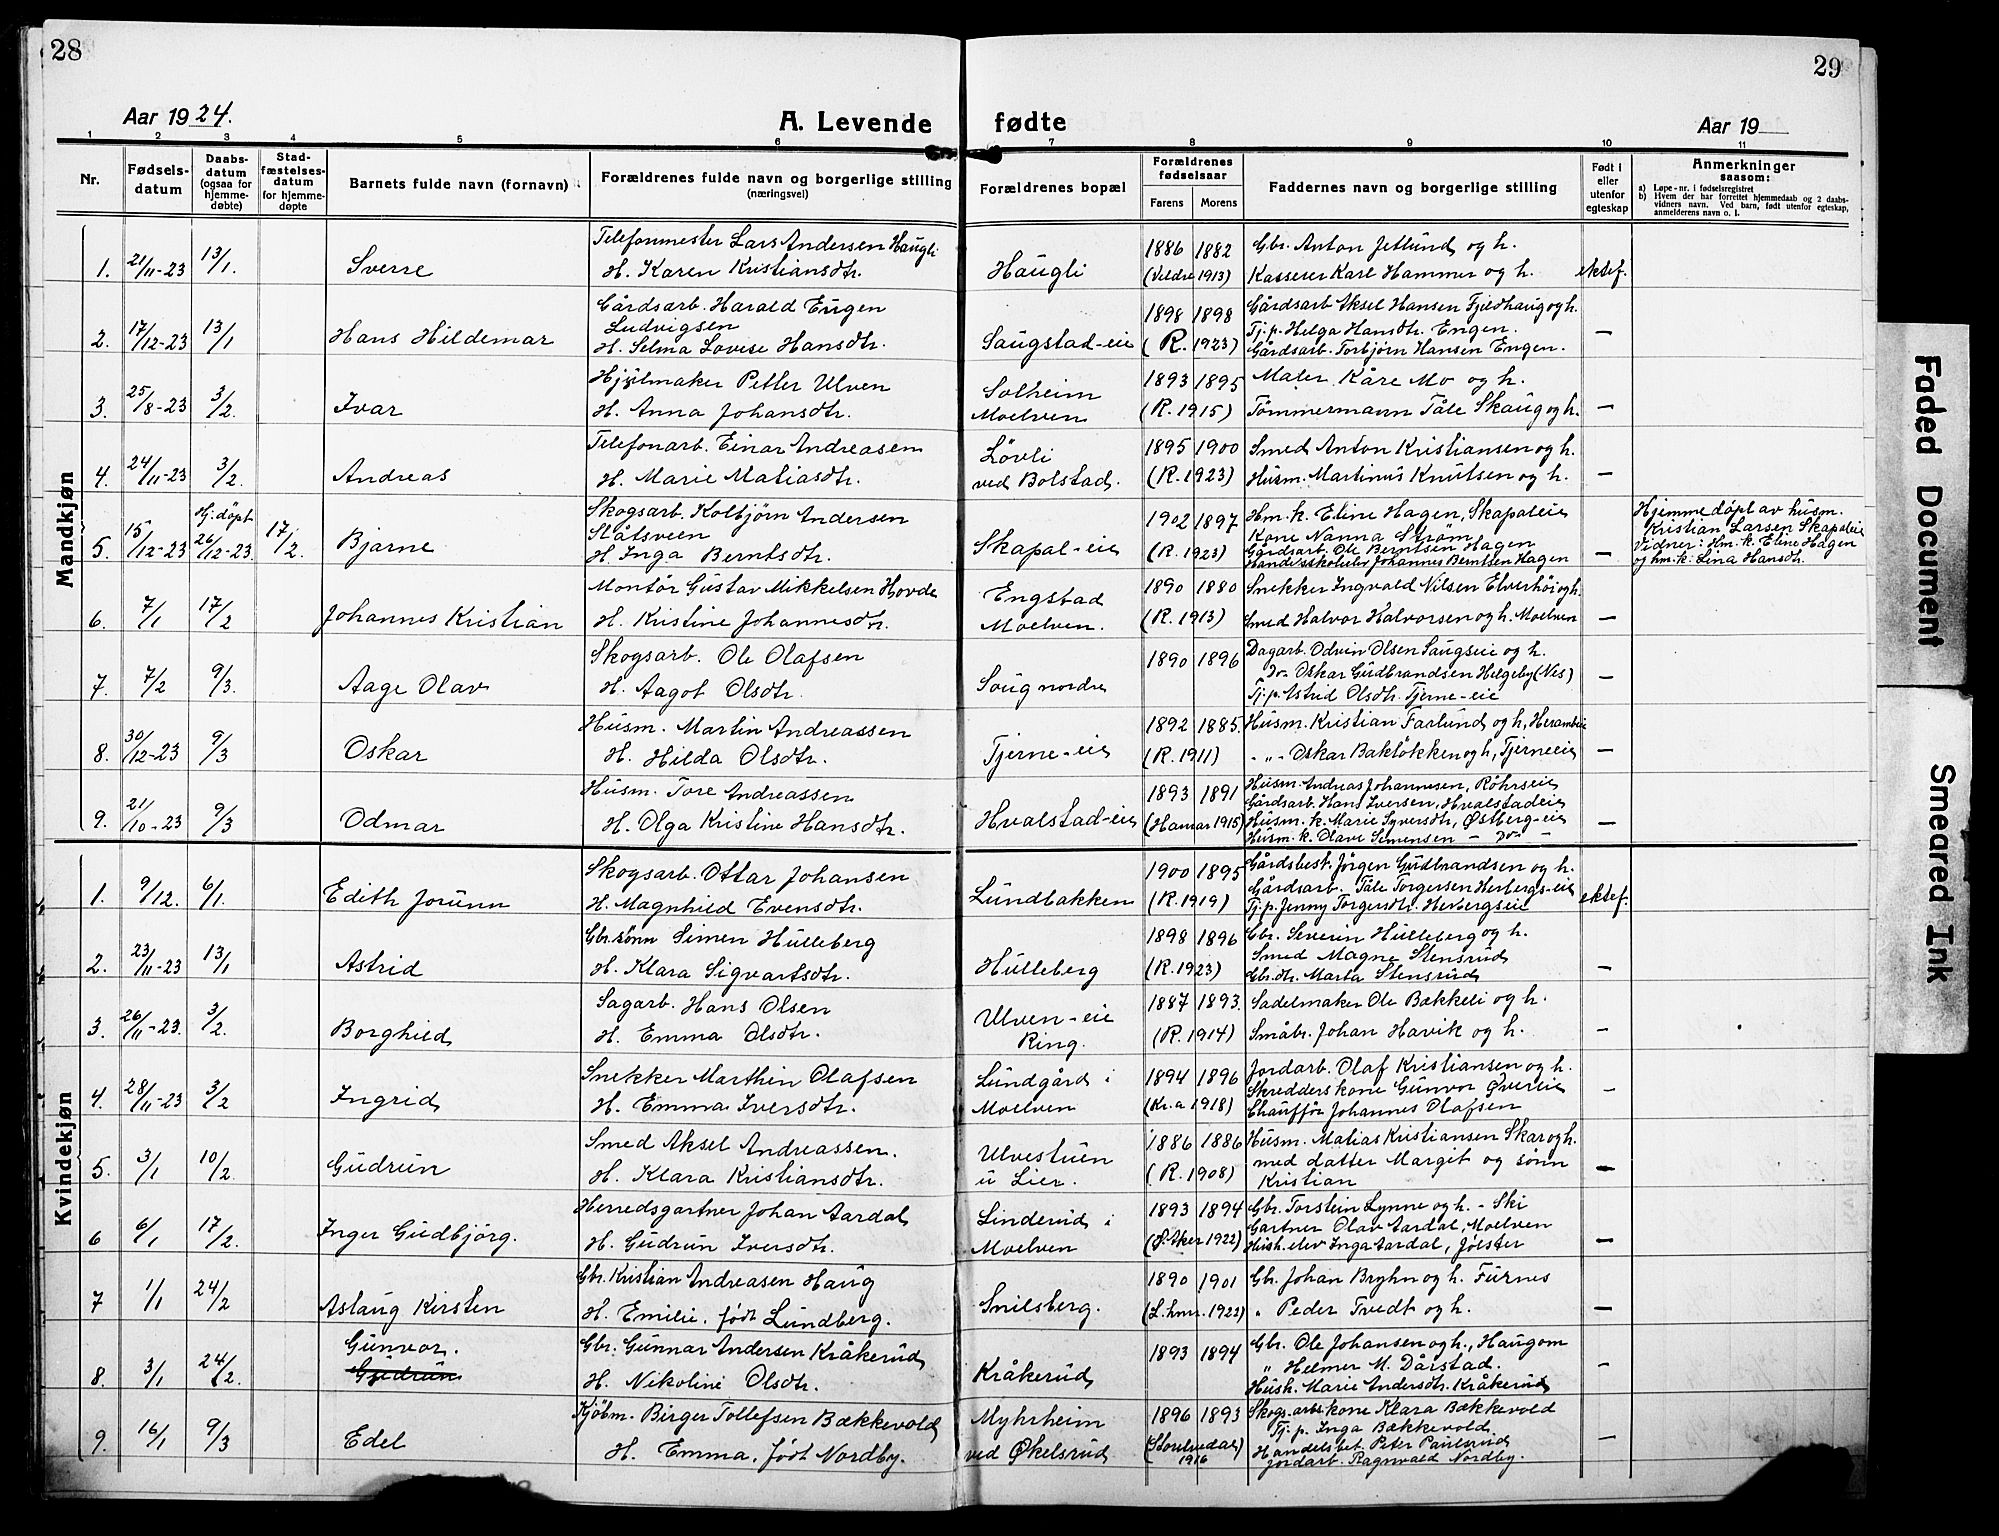 28
29
Aar 1924.
A. Levende fødte
Aar 19
1 2 3 4 5 6 7 8 9 10 11
Nr.
Fødsels-datum
Daabs-datum (ogsaa for hjemme-døbte)
Stad-fæstelses-datum for hjemme-døpte
Barnets fulde navn (fornavn)
Forældrenes fulde navn og borgerlige stilling (næringsvei)
Forældrenes bopæl
Forældrenes fødselsaar
Farens Morens
Faddernes navn og borgerlige stilling
Født i eller utenfor egteskap
Anmerkninger saasom:
a) Løpe-nr. i fødselsregistret
b) Hvem der har forrettet hjemmedaab og 2 daabs-vidners navn. Ved barn, født utenfor egteskap, anmelderens navn o. l.
Mandkjøn
1. 21/11-23 13/1. Sverre
Telefonmester Lars Andersen Haugli
H. Karen Kristiansdtr.
Haugli
1886 1882
(Veldre 1913)
Gbr. Anton Jetlund og h.
Kasserer Karl Hammer og h.
ektef.
2. 17/12-23 13/1 Hans Hildemar
Gårdsarb. Harald Eugen
Ludvigsen
H. Selma Lovise Hansdtr.
Saugstad-eie
1898 1898
(R. 1923)
Gårdsarb. Aksel Hansen Fjeldhaug og h.
Tj.p. Helga Hansdtr. Engen.
Gårdsarb. Torbjørn Hansen Engen.
—
3. 25/8-23 3/2 Ivar
Hjulmaker Petter Ulven
H. Anna Johansdtr.
Solheim
Moelven
1893 1895
(R. 1915)
Maler Kåre Mo og h.
Tømmermann Tåle Skaug og h.
—
4. 24/11-23 3/2. Andreas
Telefonarb. Einar Andreasen
H. Marie Matiasdtr.
Løvli
ved Bolstad.
1895 1900
(R. 1923)
Smed Anton Kristiansen og h.
Husm. Martinus Knutsen og h.
—
5. 15/12-23 Hj. døpt 26/12-23 17/2. Bjarne
Skogsarb. Kolbjørn Andersen
Slåtsveen
H. Inga Berntsdtr.
Skapal-eie
1902 1897
(R. 1923)
Hm.k. Eline Hagen, Skapaleie
Kone Nanna Strøm
Gårdsarb. Ole Berntsen Hagen
Handelsskoleelev Johannes Berntsen Hagen
—
Hjemmedøpt av husm.
Kristian Larsen Skapaleie
Vidner: Hm.k. Eline Hagen
og hm.k. Lina Hansdtr.
6. 7/1 17/2 Johannes Kristian
Montør Gustav Mikkelsen Hovde
H. Kristine Johannesdtr.
Engstad
Moelven.
1890 1880
(R. 1913)
Snekker Ingvald Nilsen Elverhøi og h.
Smed Halvor Halvorsen og h. Moelven
—
7. 7/2 9/3. Aage Olav
Skogsarb. Ole Olafsen
H. Aagot Olsdtr.
Saug nordre
1890 1896
Dagarb. Odvin Olsen Saugseie og h.
Do Oskar Gudbrandsen Helgeby (Nes)
Tj.p. Astrid Olsdtr. Tjerne-eie
—
8. 30/12-23 9/3 Oskar
Husm. Martin Andreassen
H. Hilda Olsdtr.
Tjerne-eie
1892 1885.
(R. 1911)
Husm. Kristian Farlund og h, Herambeie
„ „ Oskar Bakløkken og h, Tjerneeie
—
9. 21/10-23 9/3 Odmar
Husm. Tore Andreassen
H. Olga Kristine Hansdtr.
Hvalstad-eie
1893 1891
(Hamar 1915)
Husm. Andreas Johannesen, Røhrseie
Gårdsarb. Hans Iversen, Hvalstadeie
Husm. k. Marie Syversdtr, Østberg-eie
Husm. k. Olave Simensen — Do —
—
Kvindekjøn
1. 9/12. 6/1. Edith Jorunn
Skogsarb. Ottar Johansen
H. Magnhild Evensdtr.
Lundbakken
1900 1895
(R. 1919)
Gårdsbest. Jørgen Gudbrandsen og h.
Gårdsarb. Tåle Torgersen Herbergs-eie
Tj.p. Jenny Torgersdtr. Herbergseie
ektef.
2. 23/11-23 13/1 Astrid
Gbr.sønn Simen Hulleberg
H. Klara Sigvartsdtr.
Hulleberg
1898 1896
(R. 1923)
Gbr. Severin Hulleberg og h.
Smed Magne Stensrud
Gbr.dtr. Marta Stensrud
—
3. 26/11-23. 3/2. Borghild
Sagarb. Hans Olsen
H. Emma Olsdtr.
Ulven-eie
Ring.
1887 1893.
(R. 1914)
Sadelmaker Ole Bækkeli og h.
Småbr. Johan Havik og h.
—
4. 28/11-23 3/2 Ingrid
Snekker Marthin Olafsen
H. Emma Iversdtr.
Lundgård i
Moelven
1894 1896
(Kr.a 1918)
Jordarb. Olaf Kristiansen og h.
Skredderskone Gunvor Øvereie
Chauffør Johannes Olafsen
—
5. 3/1 10/2. Gudrun
Smed Aksel Andreassen.
H. Klara Kristiansdtr.
Ulvestuen
u Lier.
1886 1886
(R. 1908)
Husm. Matias Kristiansen Skar og h.
med datter Margit og sønn
Kristian
—
6 6/1 17/2. Inger Gudbjørg.
Herredsgartner Johan Aardal
H. Gudrun Iversdtr.
Linderud i
Moelven
1893 1894
(Ø. Aker 1922)
Gbr. Torstein Lynne og h. - Ski
Gartner Olav Aardal, Moelven
Hush. elev Inga Aardal, Jølster
—
7 1/1 24/2 Aslaug Kirsten
Gbr. Kristian Andreasen Haug
H. Emilie, født Lundberg.
Snilsberg.
1890 1901
(L.hmr. 1922)
Gbr. Johan Bryhn og h. Furnes
„ Peder Tvedt og h.
—
8. 3/1 24/2. Gunvor.
Gudrun
Gbr. Gunnar Andersen Kråkerud
H. Nikoline Olsdtr.
Kråkerud
1893 1894
Gbr. Ole Johansen og h., Haugom
„ Helmer M. Dårstad.
Hush. Marie Andersdtr. Kråkerud
—
9. 16/1 9/3 Edel
Kjøbm. Birger Tollefsen Bækkevold
H. Emma, født Nordby.
Myhrheim
ved Økelsrud
1896 1893
(Storelvedal) 1916
Skogs-arbs.kone Klara Bækkevold
Tj.p. Inga Bækkevold.
Handelsbet. Peter Paulsrud
Jordarb. Ragnvald Nordby.
—
Faded Document
Smeared Ink